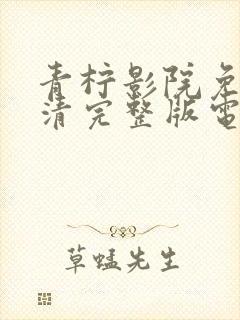 青柠影院免
清完整版電
草蜢先生